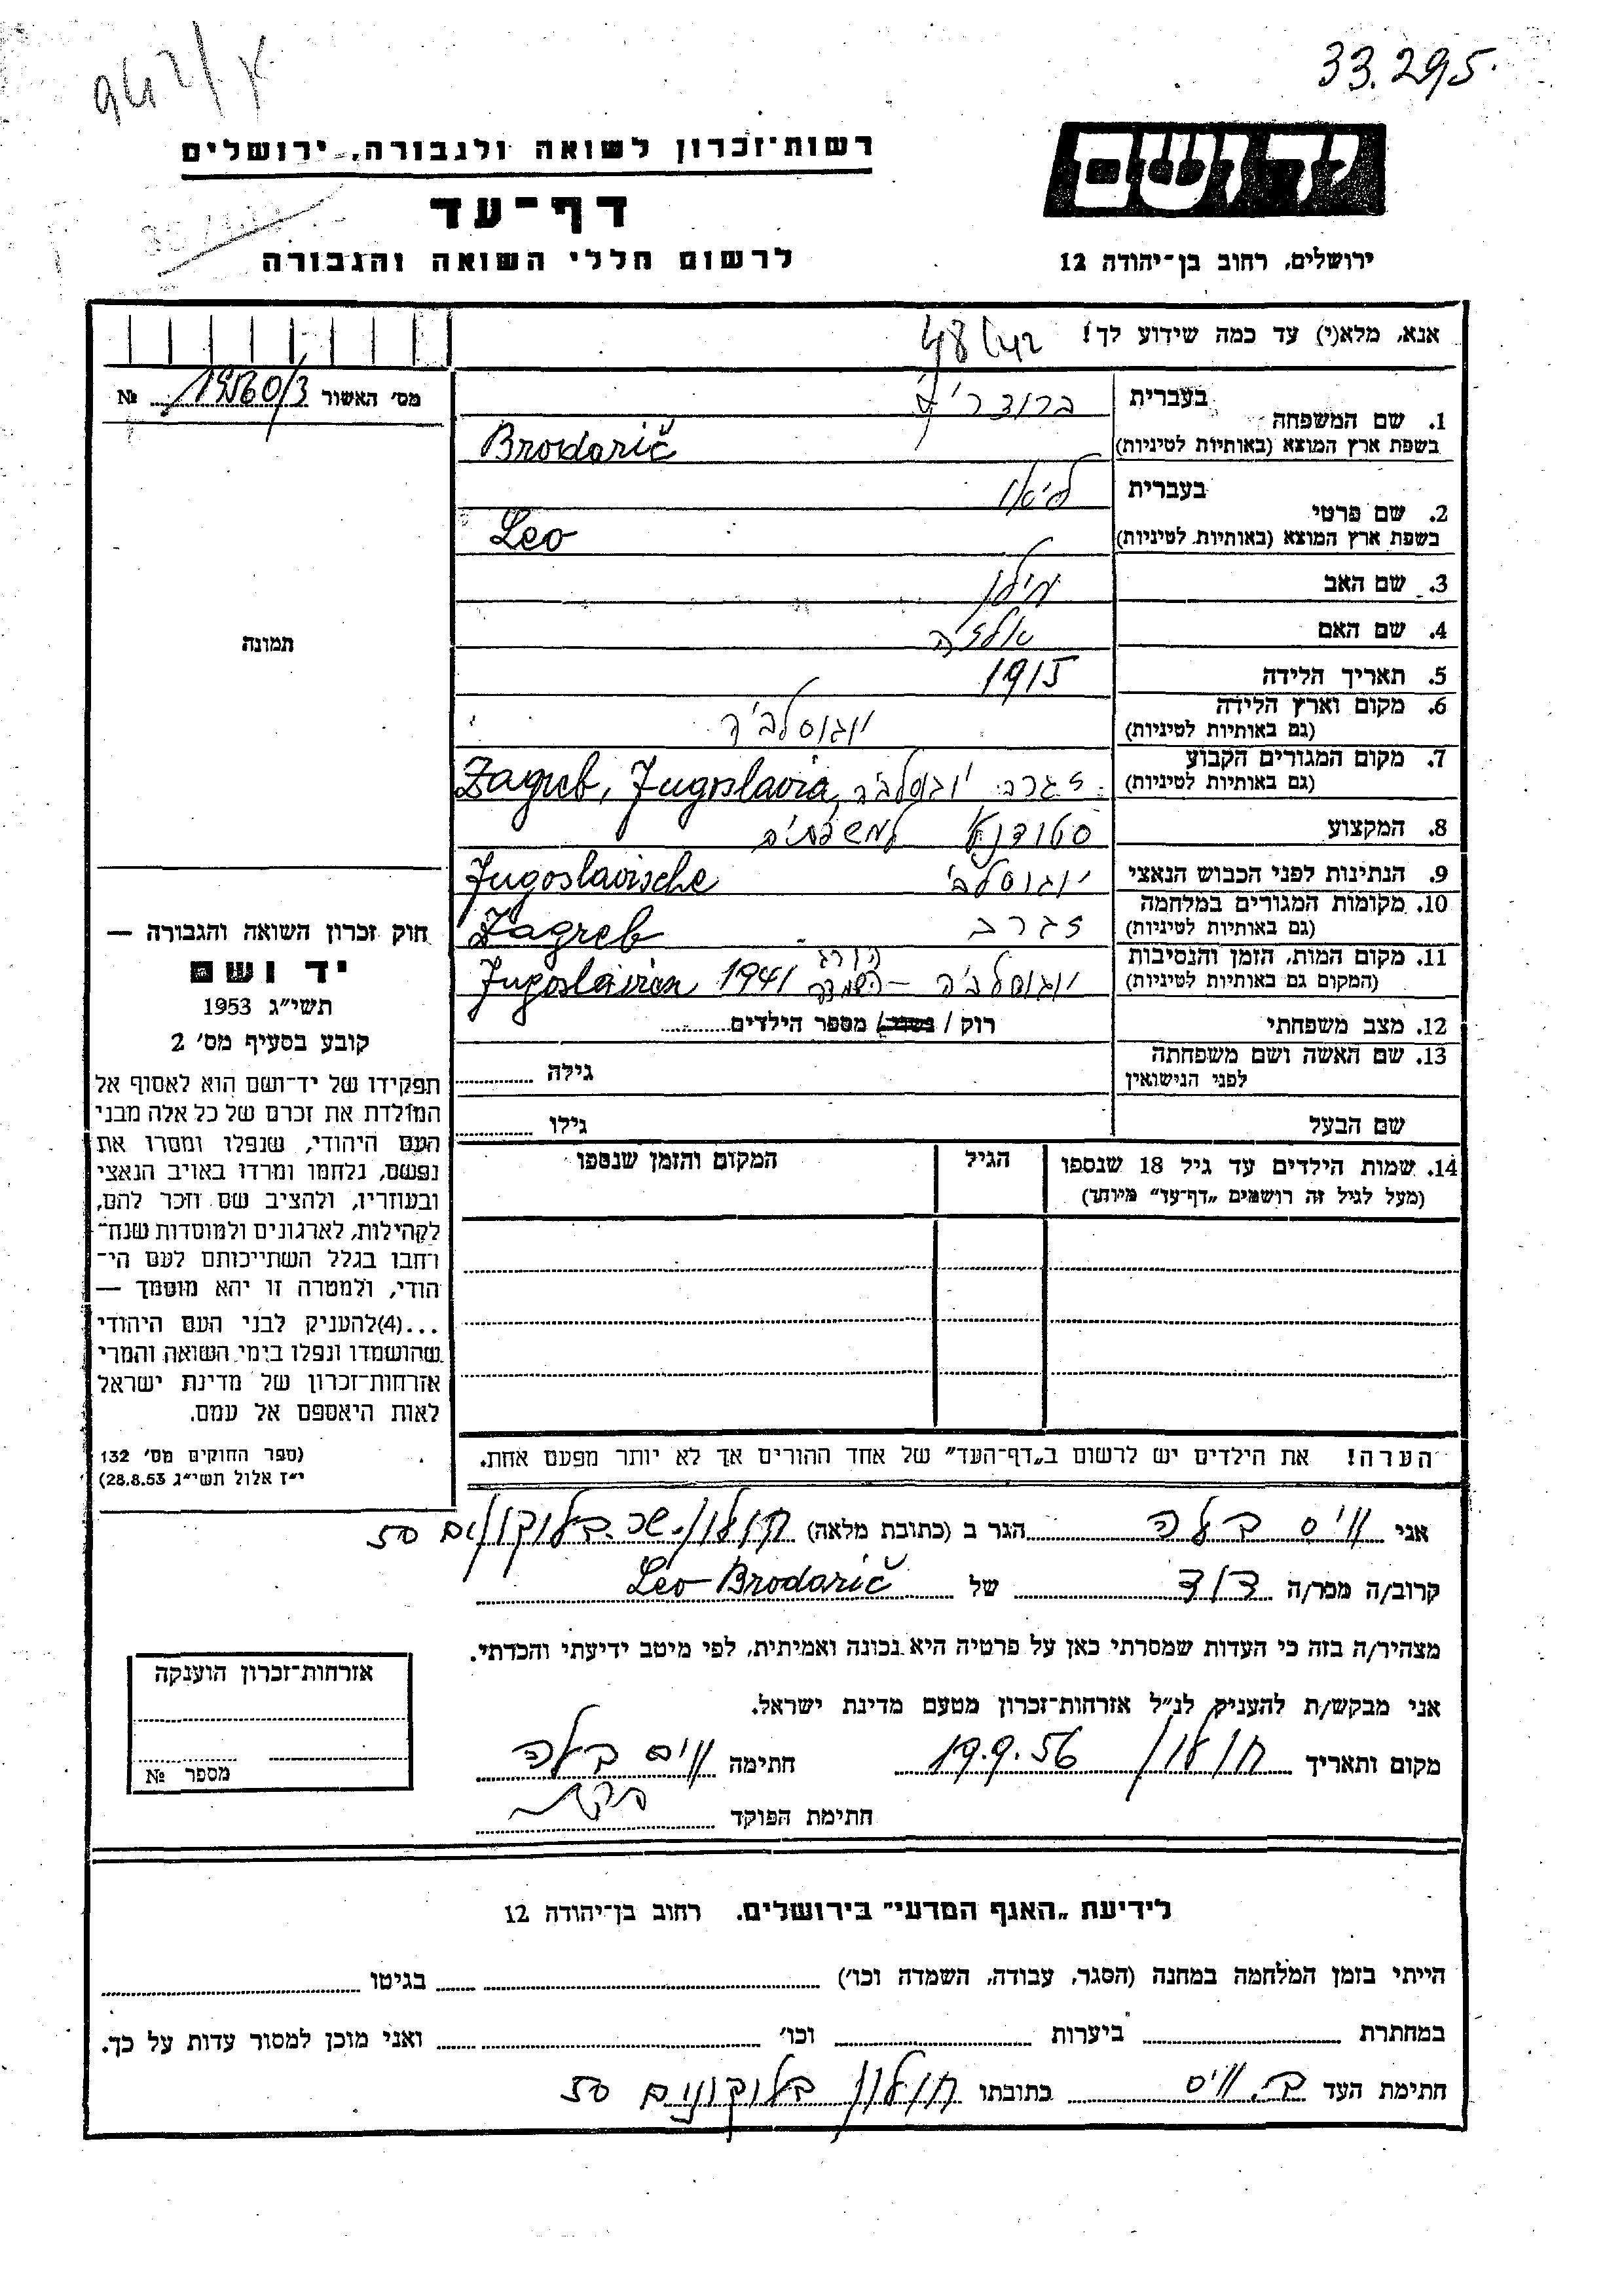 33.295
רשות־זכרון לשואה ולגבורה, ירושלים
יד ושם
דף־עד
לרשום חללי השואה והגבורה
ירושלים, רחוב בן־יהודה 12
אנא, מלא(י) עד כמה שידוע לך! 48/42
מס׳ האשור № 19560/3
1. שם המשפחה
בעברית
בשפת ארץ המוצא (באותיות לטיניות) Brodarič
2. שם פרטי
בעברית ליאו
בשפת ארץ המוצא (באותיות לטיניות) Leo
3. שם האב מילן
4. שם האם
5. תאריך הלידה 1915
6. מקום וארץ הלידה יוגוסלביה
(גם באותיות לטיניות)
7. מקום המגורים הקבוע זגרב יוגוסלביה Zagreb, Jugoslavia
(גם באותיות לטיניות)
8. המקצוע סטודנט למשפטים
9. הנתינות לפני הכבוש הנאצי יוגוסלבי Jugoslavische
10. מקומות המגורים במלחמה זגרב Zagreb
(גם באותיות לטיניות)
11. מקום המות, הזמן והנסיבות יוגוסלביה – השמדה הורג 1941 Jugoslavien
(המקום גם באותיות לטיניות)
12. מצב משפחתי רוק / נשוי / מספר הילדים
13. שם האשה ושם משפחתה גילה
לפני הנישואין
שם הבעל גילו
14. שמות הילדים עד גיל 18 שנספו הגיל המקום והזמן שנספו
(מעל לגיל זה רושמים „דף־עד” מיוחד)
הערה! את הילדים יש לרשום ב„דף־העד” של אחד ההורים אך לא יותר מפעם אחת.
תמונה
חוק זכרון השואה והגבורה —
יד ושם
תשי״ג 1953
קובע בסעיף מס׳ 2
תפקידו של יד־ושם הוא לאסוף אל
המולדת את זכרם של כל אלה מבני
העם היהודי, שנפלו ומסרו את
נפשם, נלחמו ומרדו באויב הנאצי
ובעוזריו, ולהציב שם וזכר להם,
לקהילות, לארגונים ולמוסדות שנח־
רחבו בגלל השתייכותם לעם הי־
הודי, ולמטרה זו יהא מוסמך —
...(4)להעניק לבני העם היהודי
שהושמדו ונפלו בימי השואה והמרי
אזרחות־זכרון של מדינת ישראל
לאות היאספם אל עמם.
(ספר החוקים מס׳ 132
י״ז אלול תשי״ג 28.8.53)
אני וויס בלה הגר ב (כתובת מלאה) חולון שכ. בלוקונים 50
קרוב/ה מכר/ה דוד של Leo Brodarič
מצהיר/ה בזה כי העדות שמסרתי כאן על פרטיה היא נכונה ואמיתית, לפי מיטב ידיעתי והכרתי.
אני מבקש/ת להעניק לנ״ל אזרחות־זכרון מטעם מדינת ישראל.
מקום ותאריך חולון 19.9.56 חתימה וויס בלה
חתימת הפוקד
אזרחות־זכרון הוענקה
מספר №
לידיעת „האגף המדעי” בירושלים, רחוב בן־יהודה 12
הייתי בזמן המלחמה במחנה (הסגר, עבודה, השמדה וכו׳) בגיטו
במחתרת ביערות וכו׳ ואני מוכן למסור עדות על כך.
חתימת העד ב. וויס כתובתו חולון בלוקונים 50